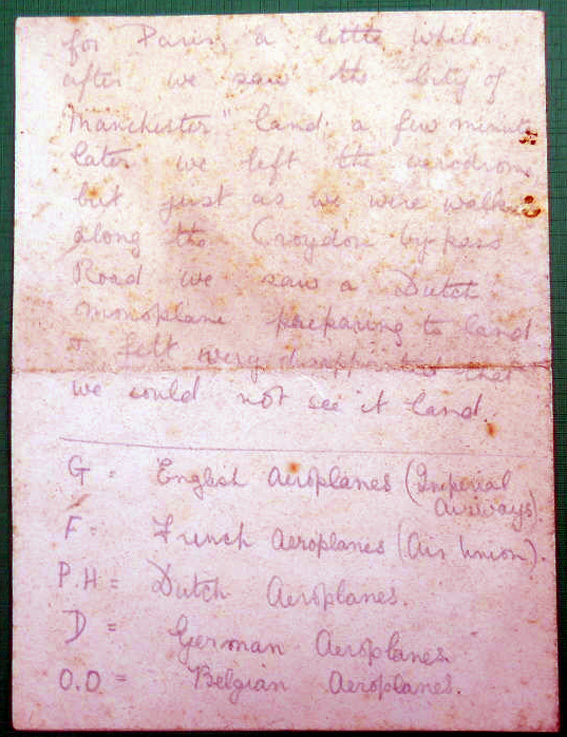 for Paris, a little while
after we saw the "City of
Manchester" land. a few minutes
later we left the aerodrome
but just as we were walking
along the Croydon by-pass
Road we saw a Dutch
monoplane preparing to land
I felt very disappointed that
we could not see it land.
G = English Aeroplanes (Imperial
Airways).
F = French Aeroplanes (Air Union).
P.H = Dutch Aeroplanes.
D = German Aeroplanes
O.O = Belgian Aeroplanes.